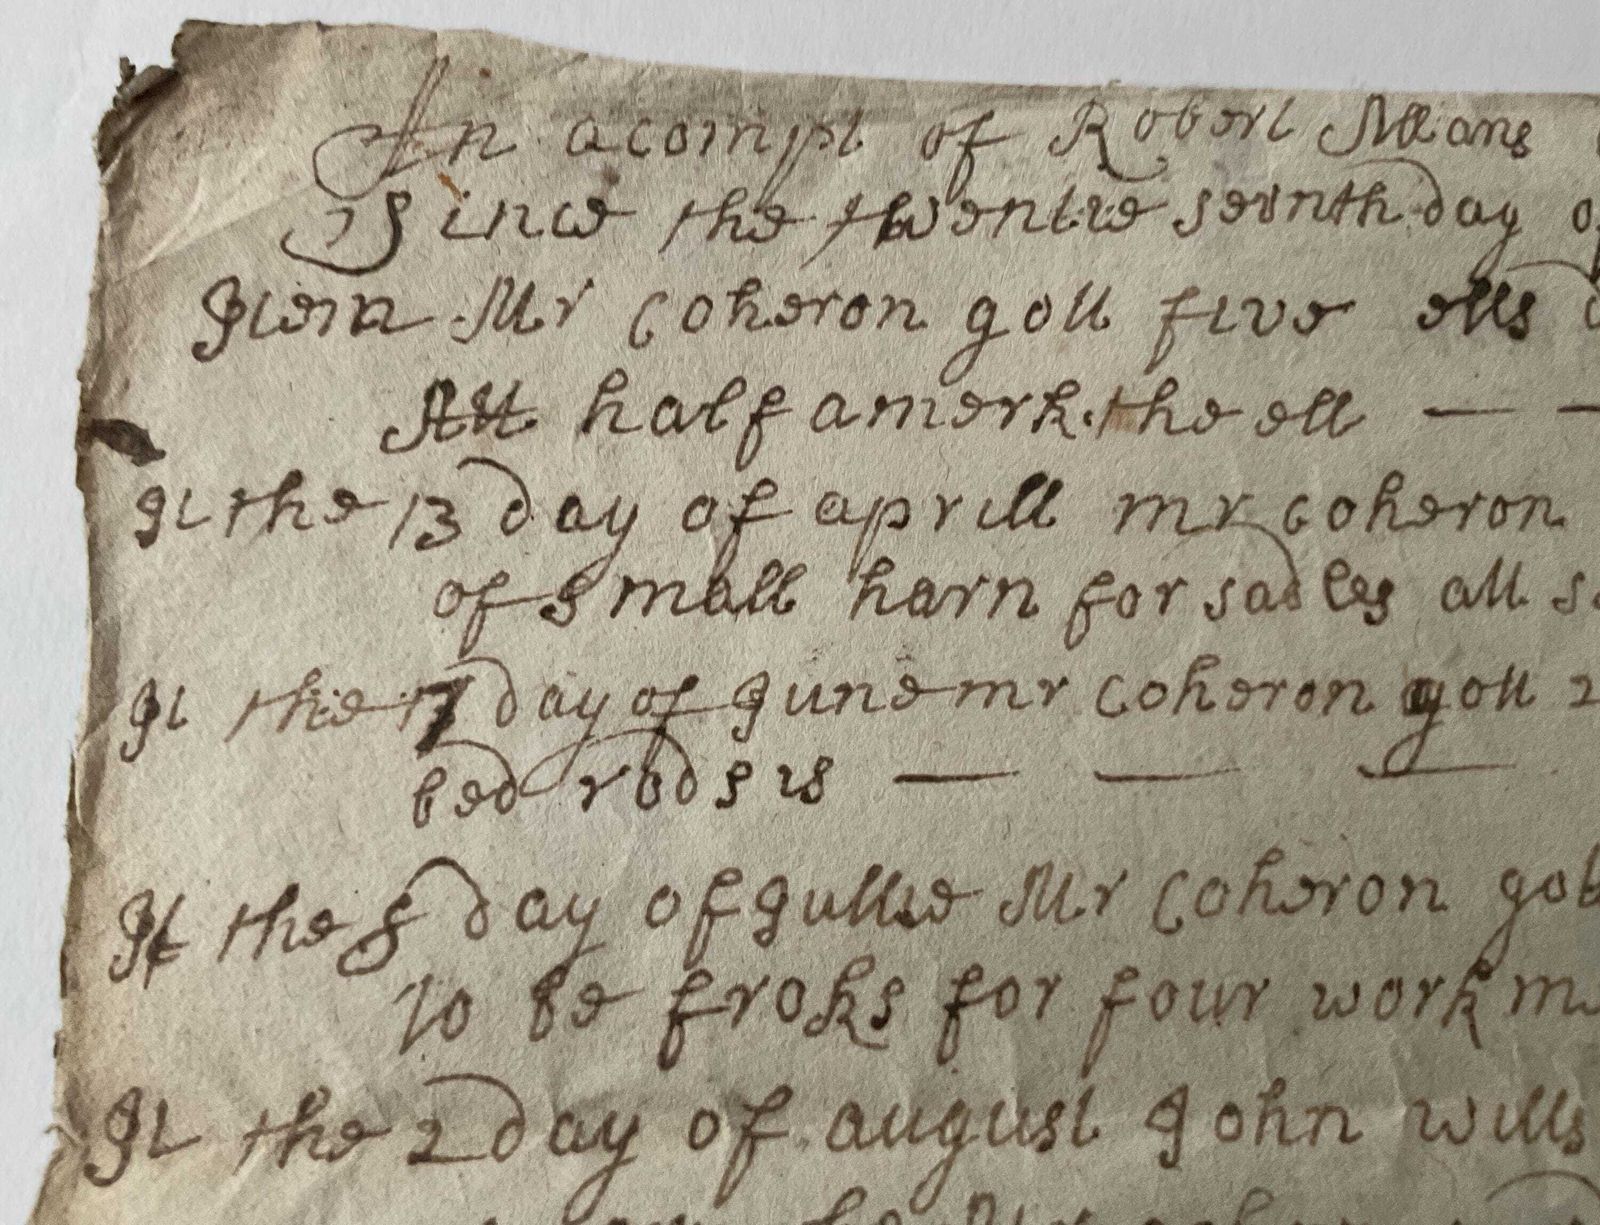 An acompt of Robert Allans
Since the twentie sevnth day of
Item Mr Coheron gott five ells
Att half a merk the ell — —
It the 13 day of aprill mr coheron
of small harn for sadles all
It the 17 day of June mr Coheron gott 2
bed rods is — — —
It the 8 day of Jullie Mr Coheron got
To be froks for four work
It the 2 day of august John wills